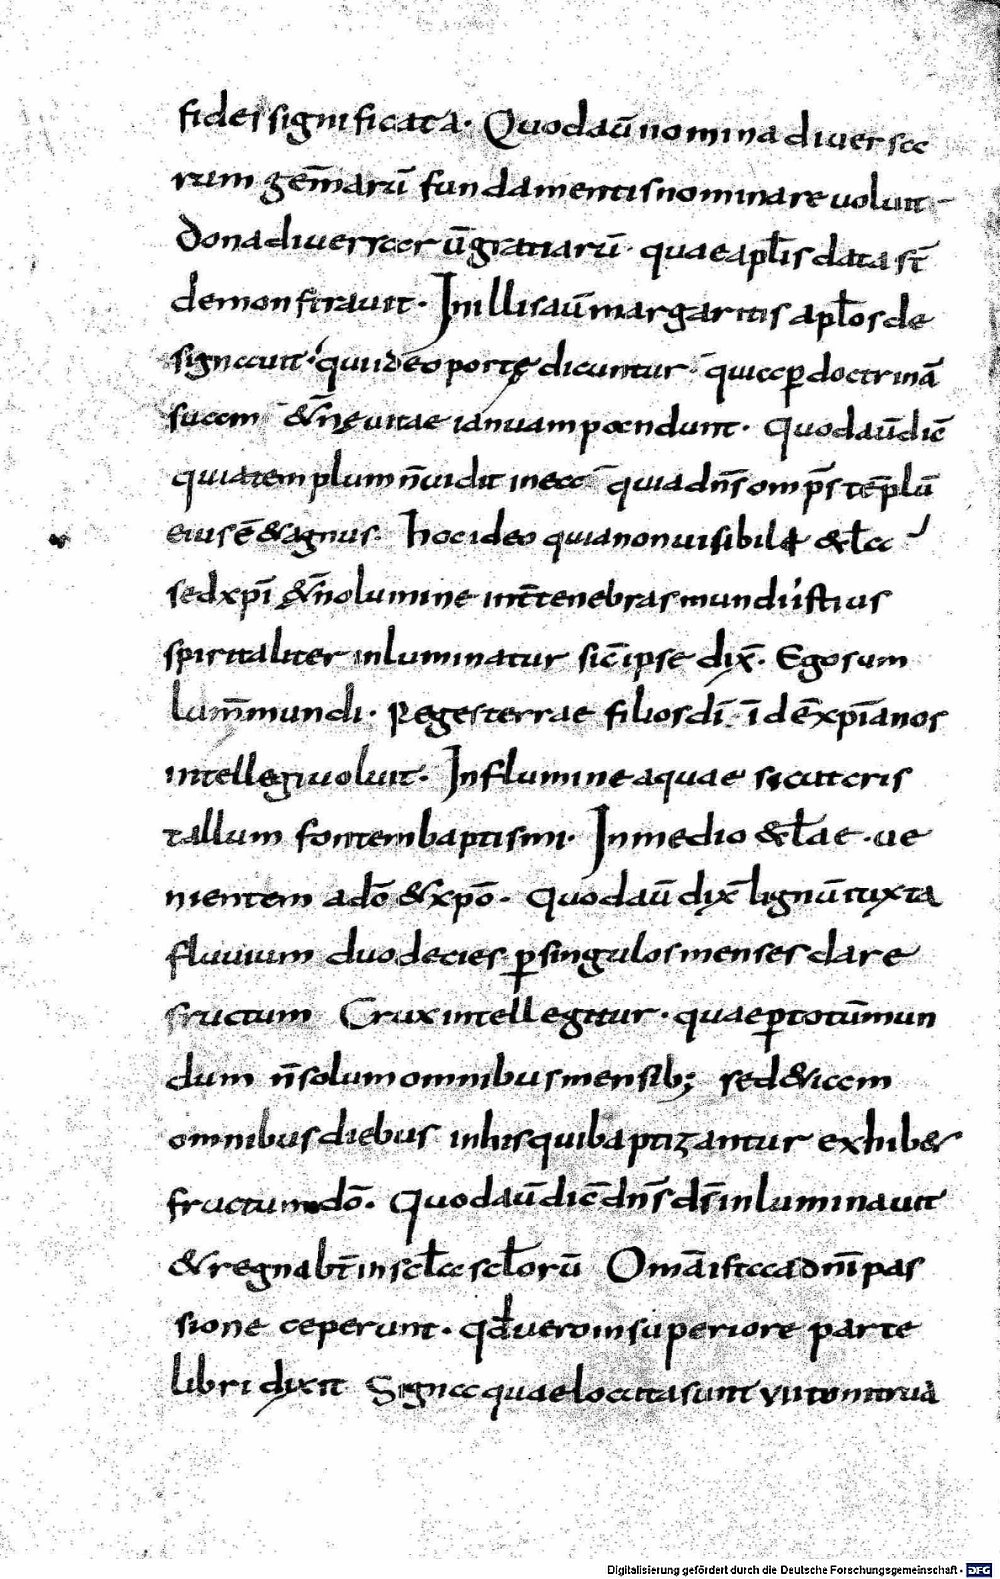 fidei significata. Quod aū nomina diversa
rum gēmarū fundamentis nominare voluit
dona diversarū gratiarū quae apl̄is data s̄t
demonstravit. In illis aū margaritis apl̄os de
signavit. qui ideo portę dicuntur. q̄uia ꝑ doctrinā
suam &̄nę vitae ianuam pandunt. Quod aū dic̄
quia templum n̄ vidit in ea q̄uia dn̄s omp̄s tēplū
eius ē & agnus. hoc ideo quia non visibilę &l̄a
sed xpī &̄no lumine int̄ tenebras mundi istius
spiritaliter inluminatur sic̄ ipse dix̄. Ego sum
lum̄ mundi. Reges terrae filios dī. īd ē xpīanos
intellegi voluit. In flumine aquae sicut cris
tallum fontem baptismi. In medio &l̄ae. ve
nientem a dō & xpō. Quod aū dix̄ lignū iuxta
fluvium duodecies ꝑ singulos menses dare
fructum Crux intellegitur. quae ꝑ totū mun
dum n̄ solum omnibus mensib; sed &iam
omnibus diebus in his qui baptizantur exhib&
fructum dō. Quod aū dic̄ dn̄s ds̄ inluminavit
& regnabt̄ in scl̄a scl̄orū Om̄a ista a dn̄i pas
sione ceperunt. qđ vero in superiore parte
libri dixit Signa quae locuta sunt VII tonitrua